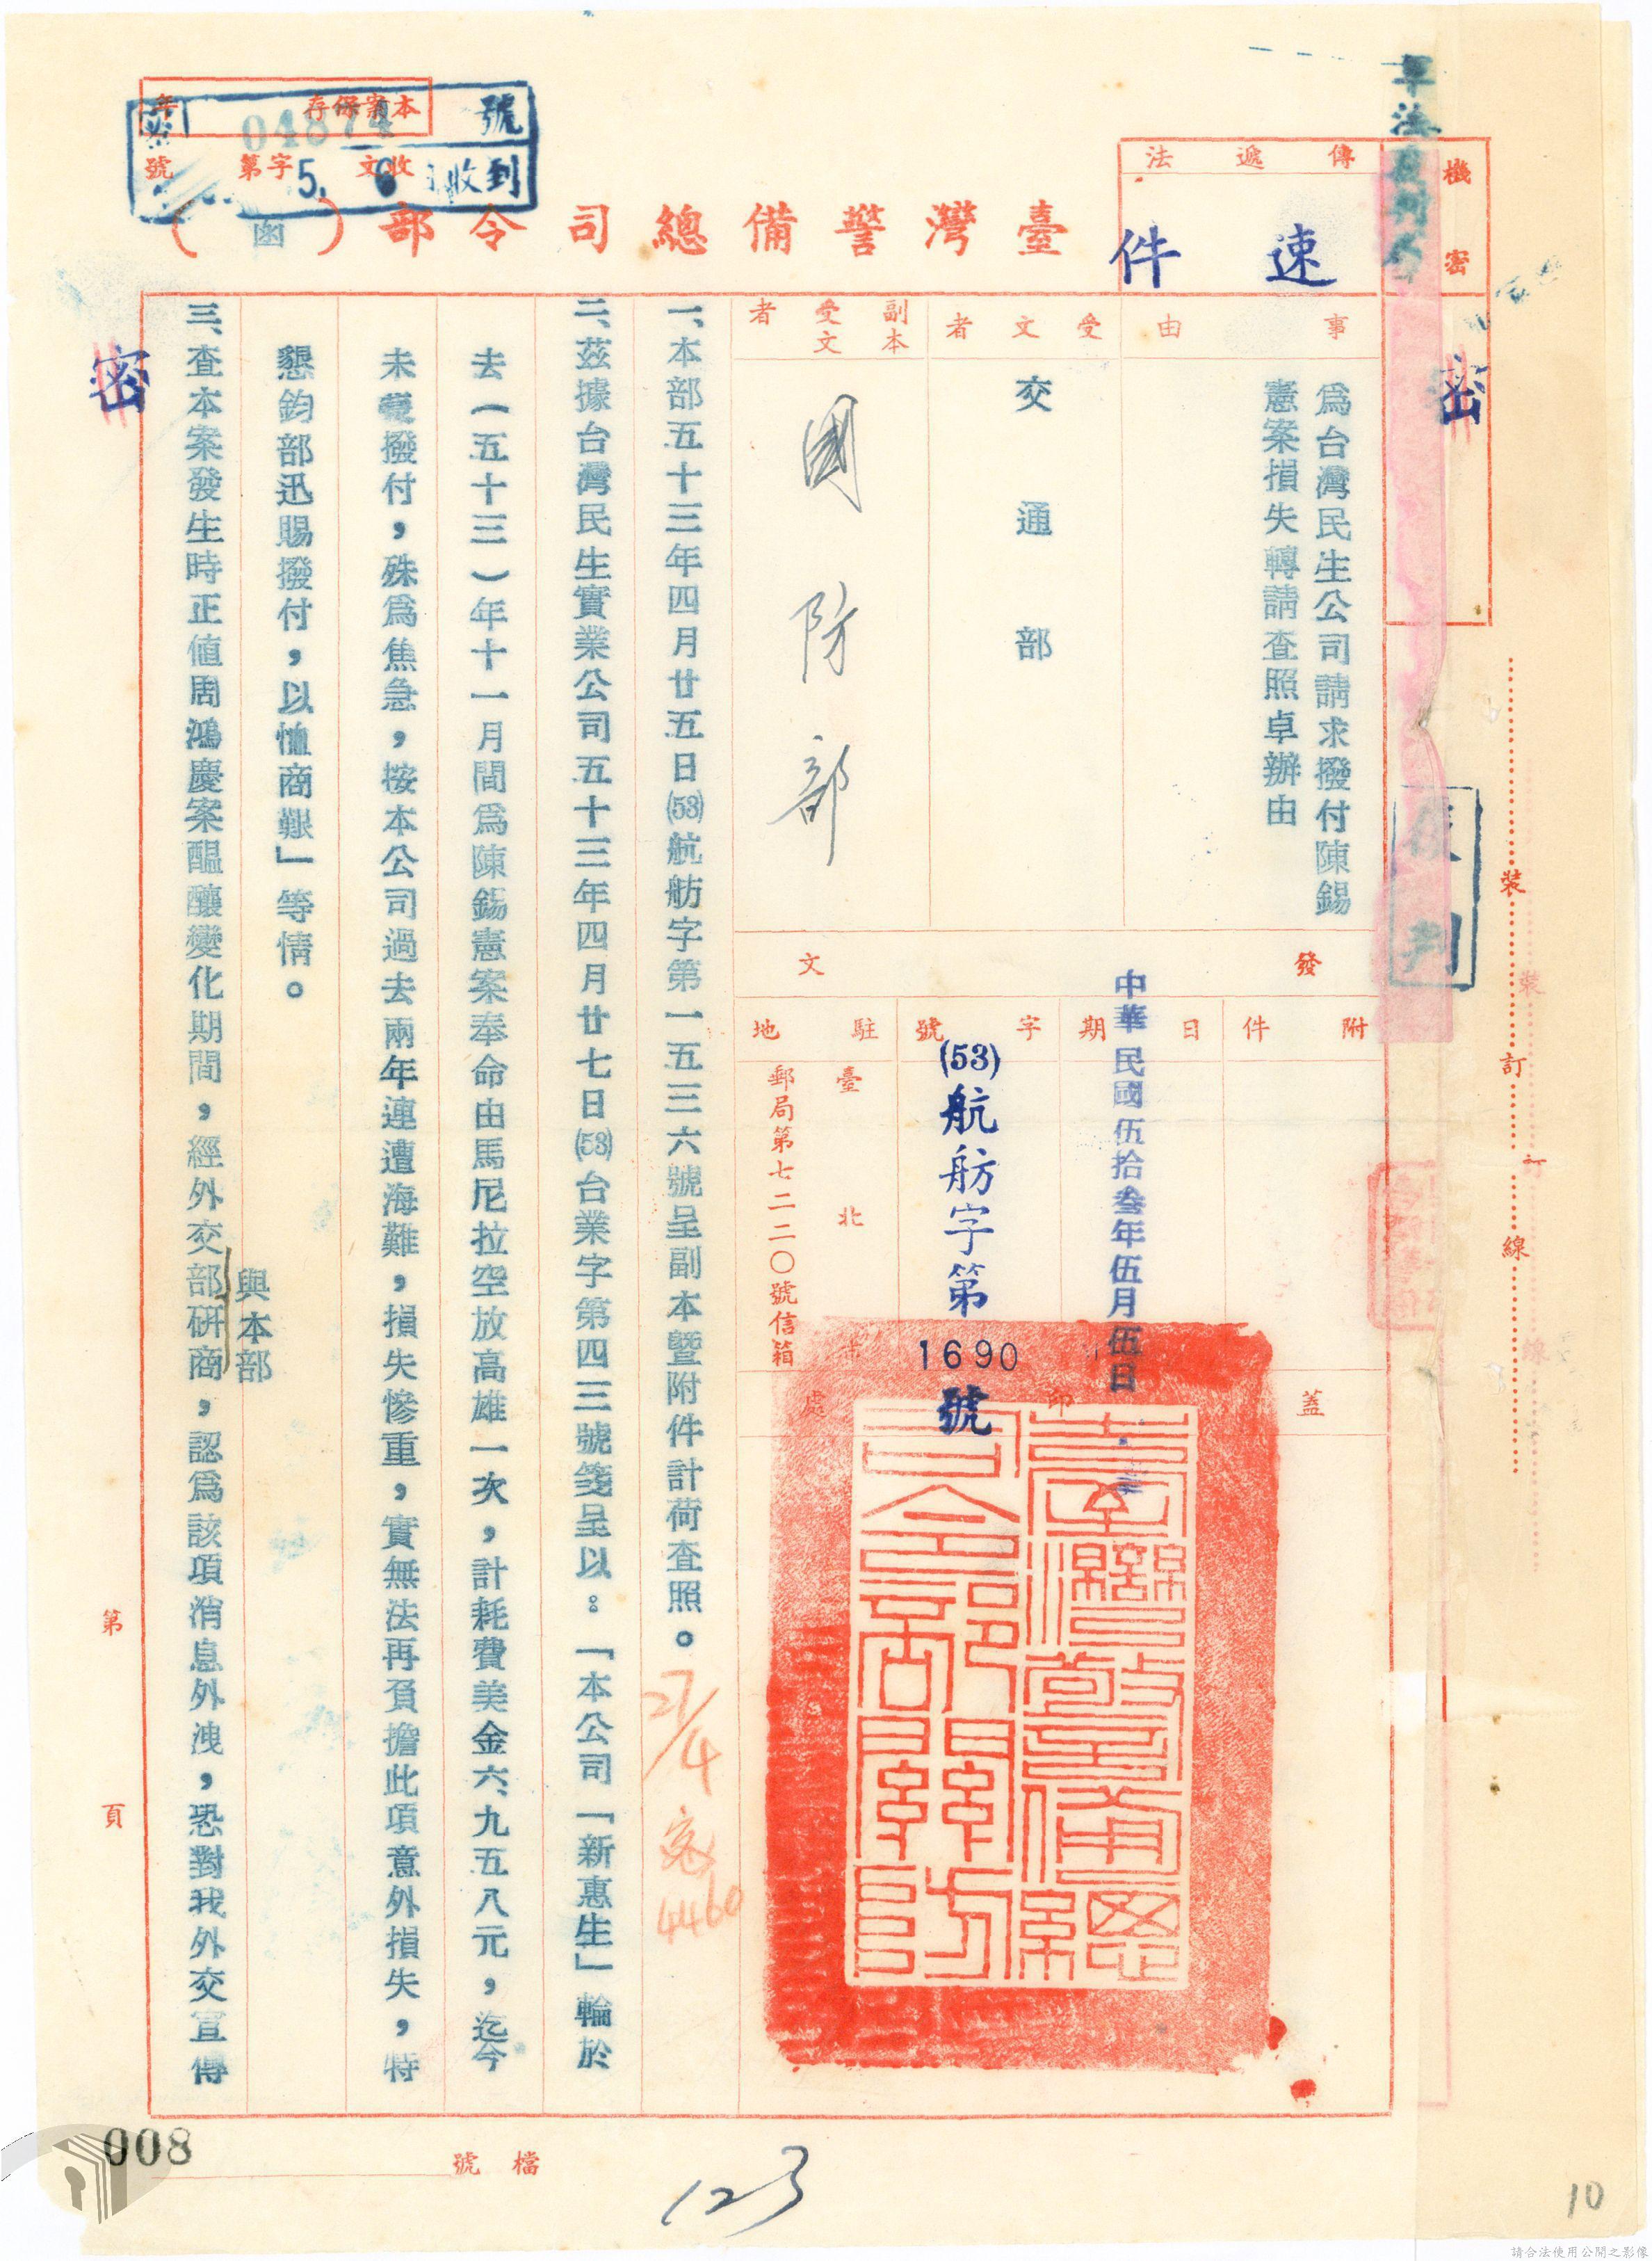 本案保存 年
收文 字第 號
號
04874
5. 6 收到
臺灣警備總司令部（函）
傳遞法
速件
機密
密
密
事由
為台灣民生公司請求撥付陳錫
憲案損失轉請查照卓辦由
受文者
交通部
副本受文者
國防部
發文
附件
日期
中華民國伍拾叁年伍月伍日
字號
(53)航舫字第1690號
駐地
臺北
郵局第七二二〇號信箱
蓋印處
臺灣警備總司令部關防
一、本部五十三年四月廿五日(53)航舫字第一五三六號呈副本暨附件計荷查照。
27/4
4460
二、茲據台灣民生實業公司五十三年四月廿七日(53)台業字第四三號箋呈以：「本公司「新惠生」輪於
去（五十三）年十一月間為陳錫憲案奉命由馬尼拉空放高雄一次，計耗費美金六、九五八元，迄今
未蒙撥付，殊為焦急，按本公司過去兩年連遭海難，損失慘重，實無法再負擔此項意外損失，特
懇鈞部迅賜撥付，以恤商艱」等情。
三、查本案發生時正值周鴻慶案醞釀變化期間，經外交部與本部研商，認為該項消息外洩，恐對我外交宣傳
裝
訂
線
第 頁
檔號
008
123
10
請合法使用公開之影像